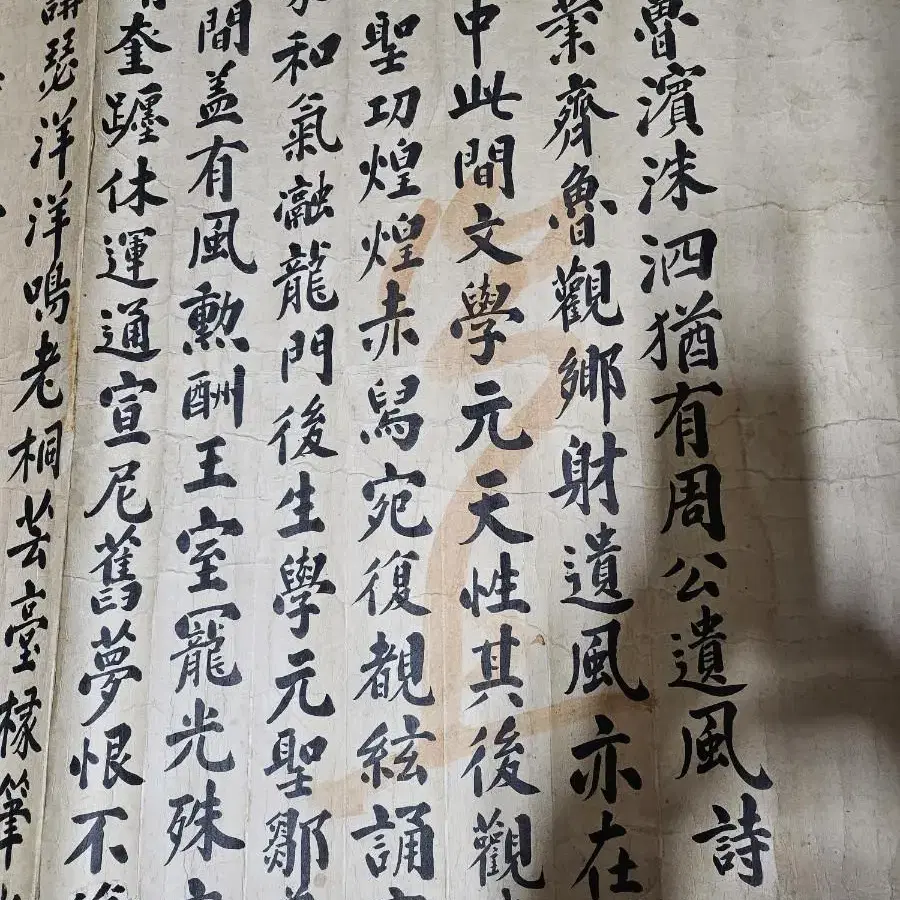 魯濱洙泗猶有周公遺風詩
業齊魯觀鄉射遺風亦在
中此間文學元天性其後觀
聖功煌煌赤舄宛復覩絃誦
和氣瀜龍門後生學元聖鄒
間盖有風勲酬王室寵光殊
奎躔休運通宣尼舊夢恨不
瑟洋洋鳴老桐芸臺椽筆